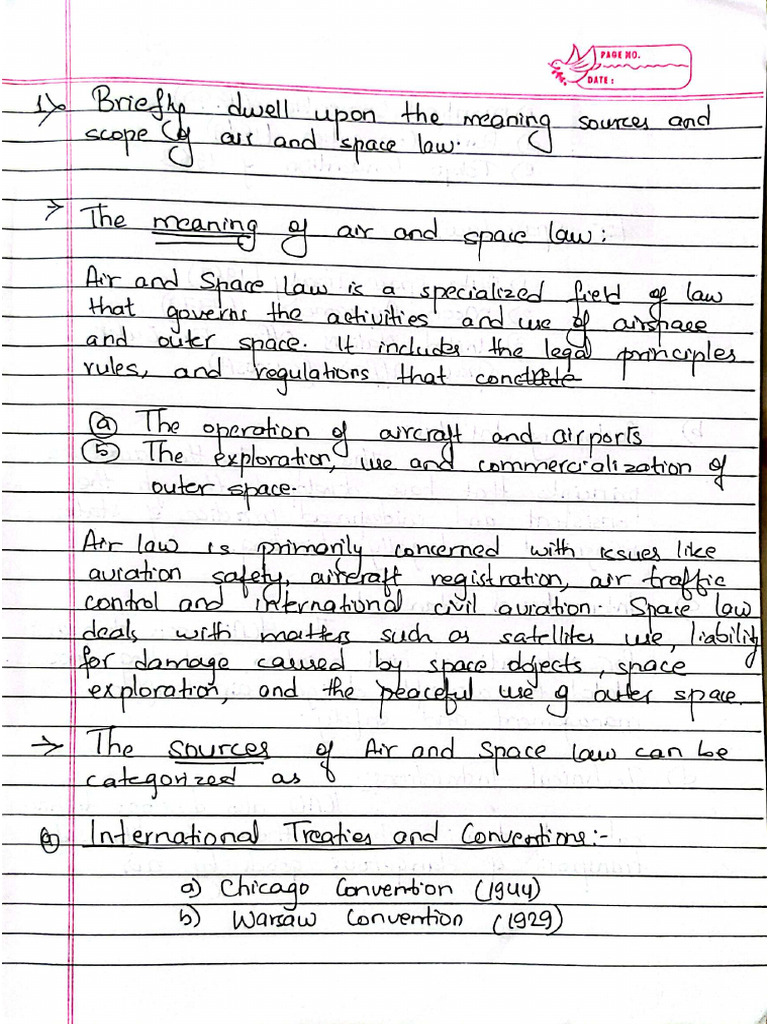 PAGE NO.
DATE:
1) Briefly dwell upon the meaning sources and
scope of air and space law.
→ The meaning of air and space law:
Air and Space law is a specialized field of law
that governs the activities and use of airspace
and outer space. It includes the legal principles
rules, and regulations that
ⓐ The operation of aircraft and airports
ⓑ The exploration, use and commercialization of
outer space.
Air law is primarily concerned with issues like
aviation safety, aircraft registration, air traffic
control and international civil aviation. Space law
deals with matters such as satellites use, liability
for damage caused by space objects, space
exploration, and the peaceful use of outer space.
→ The sources of Air and Space law can be
categorized as
ⓐ International Treaties and Conventions:-
a) Chicago Convention (1944)
b) Warsaw Convention (1929)